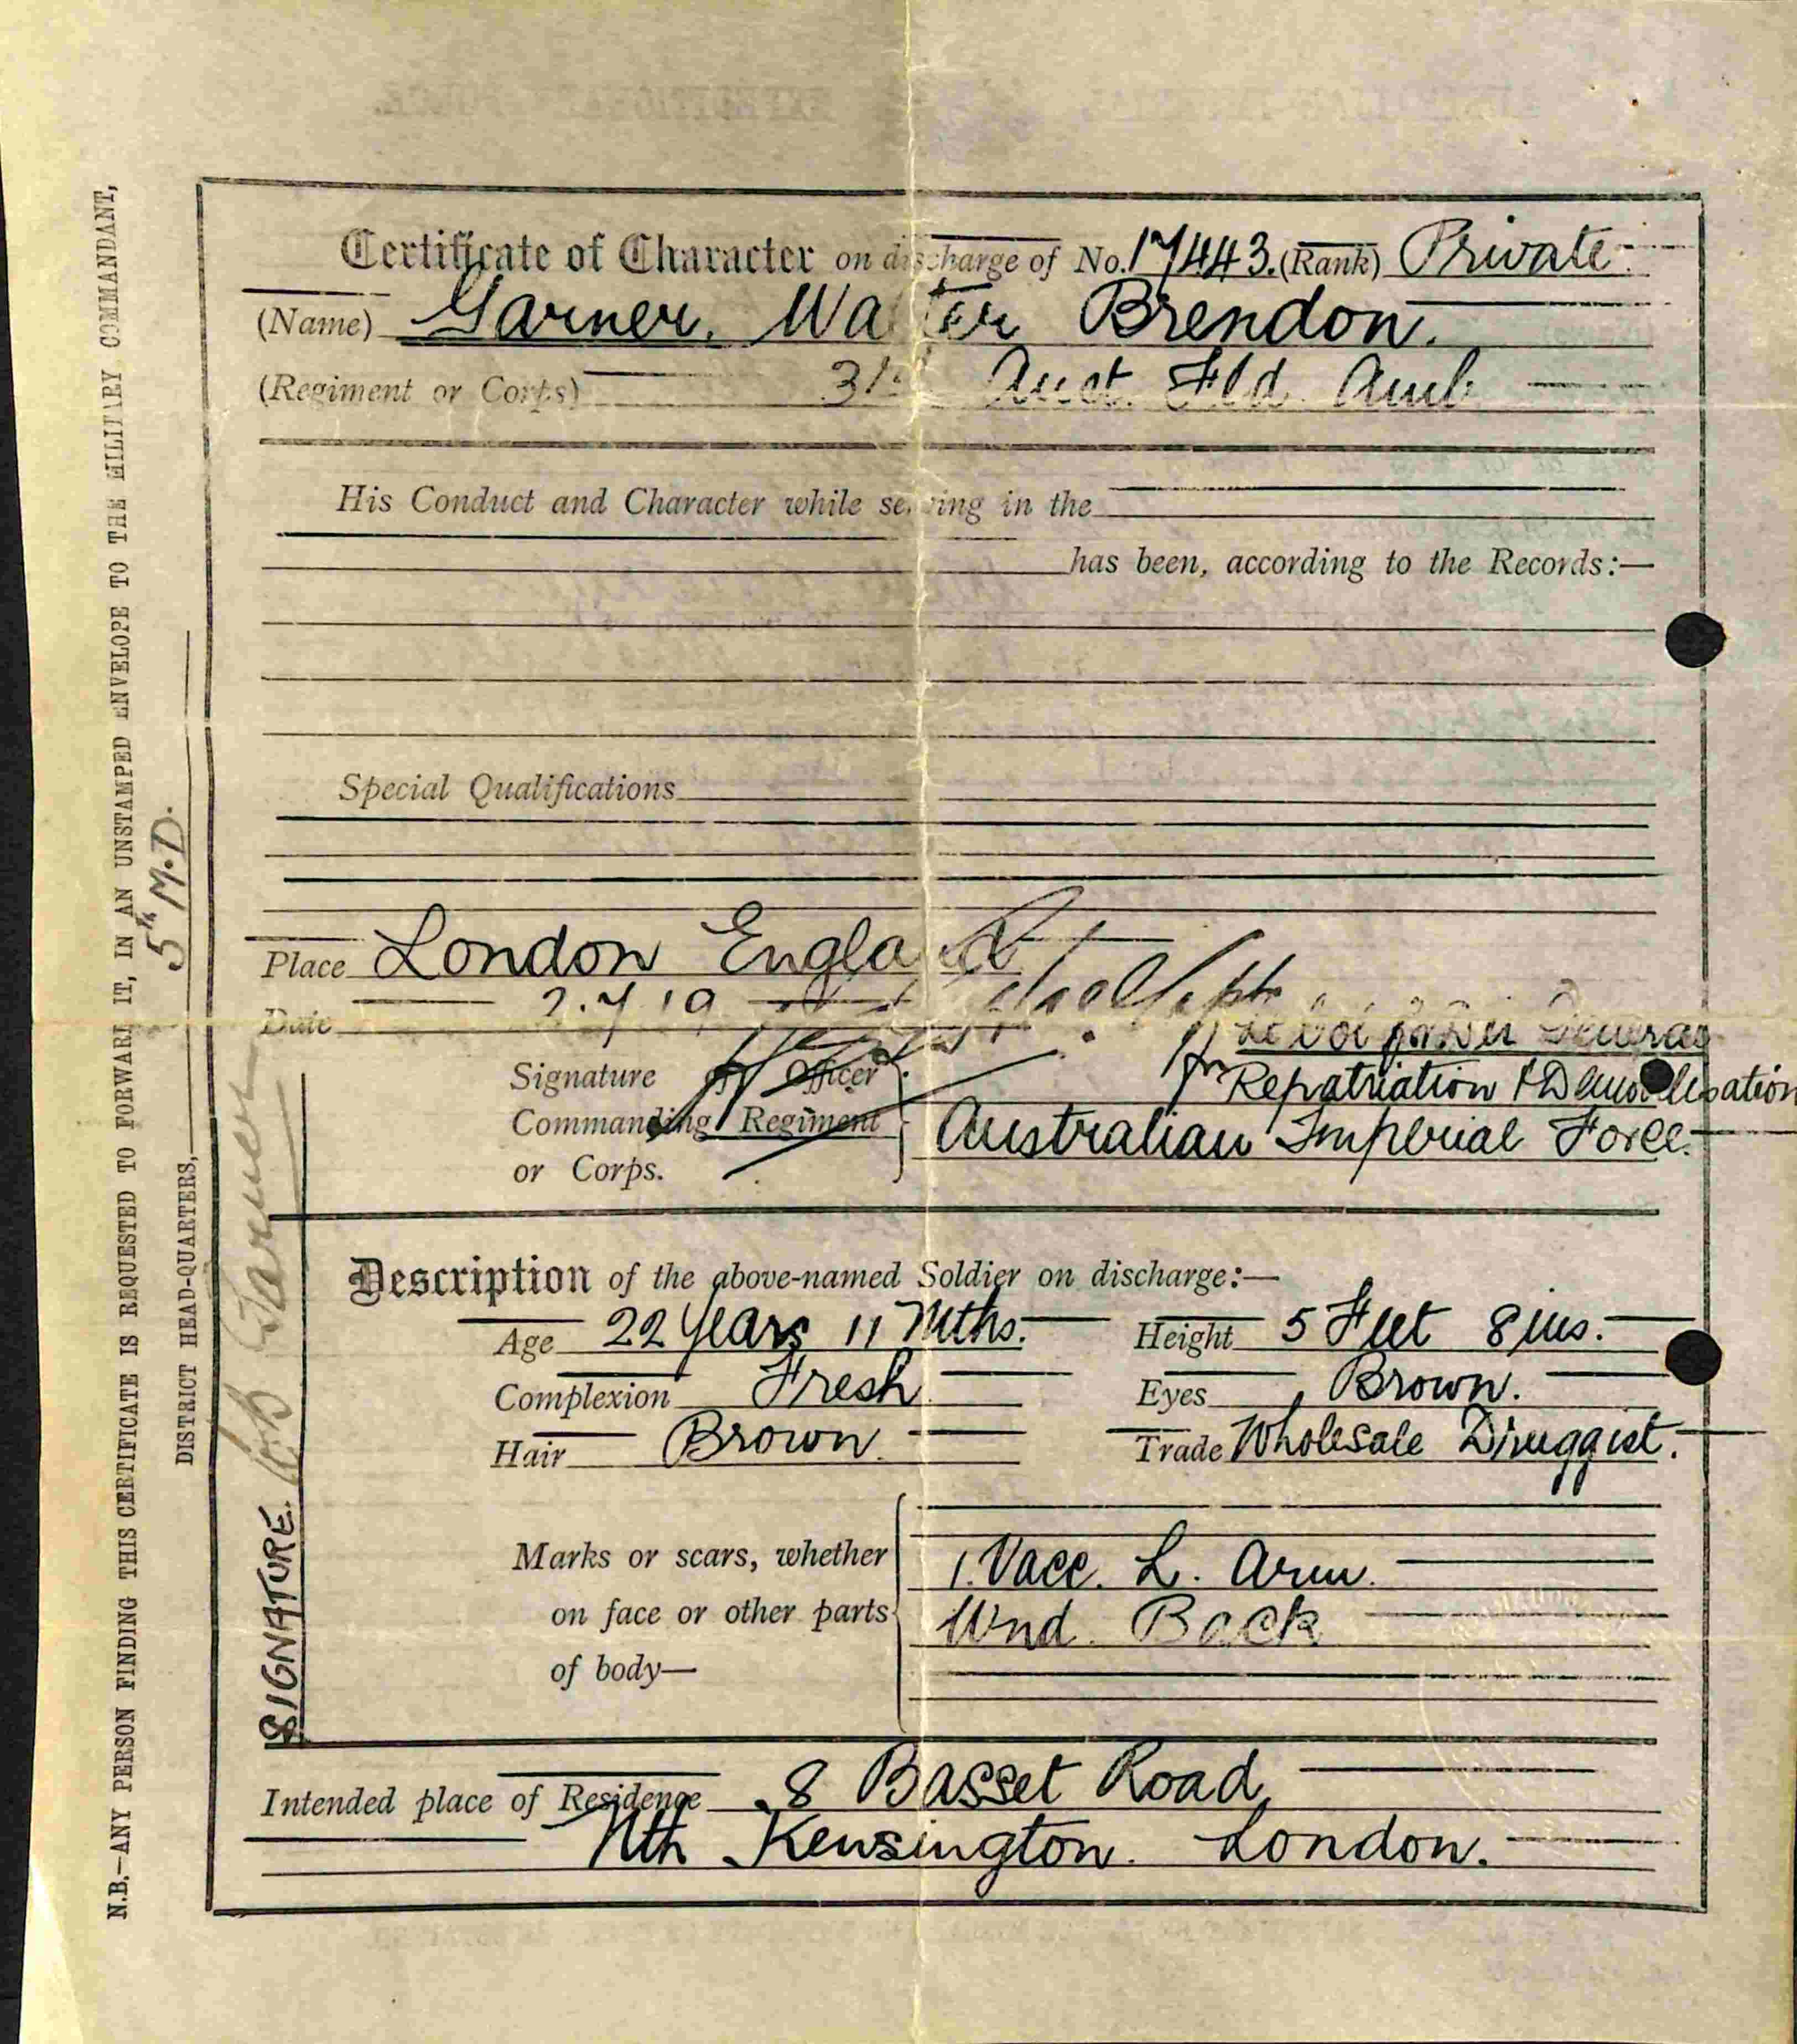 Certificate of Character on discharge of No. 17443. (Rank) Private
(Name) Garner. Walter Brendon.
(Regiment or Corps) Aust. Fld. Amb
His Conduct and Character while serving in the
has been, according to the Records:—
Special Qualifications
Place London England
Date 2.7.19
Signature of Officer
Commanding Regiment
or Corps.
Lt Col for Dir General
for Repatriation & Demobilisation
Australian Imperial Force.
Description of the above-named Soldier on discharge:—
Age 22 Years 11 Mths. Height 5 Feet 8 ins.
Complexion Fresh Eyes Brown.
Hair Brown. Trade Wholesale Druggist.
Marks or scars, whether
on face or other parts
of body—
1. Vacc. L. Arm.
Wnd. Back
Intended place of Residence 8 Basset Road,
Nth Kensington. London.
SIGNATURE. Garner
N.B.—ANY PERSON FINDING THIS CERTIFICATE IS REQUESTED TO FORWARD IT, IN AN UNSTAMPED ENVELOPE TO THE MILITARY COMMANDANT,
DISTRICT HEAD-QUARTERS, 5th M.D.